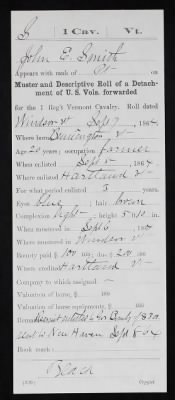 S | 1 Cav. | Vt.
John E. Smith
Appears with rank of Pt on
Muster and Descriptive Roll of a Detach-
ment of U. S. Vols. forwarded
for the 1 Reg't Vermont Cavalry. Roll dated
Windsor Vt Sept 7, 1864.
Where born Burlington Vt
Age 20 years; occupation farmer
When enlisted Sept 5, 1864.
Where enlisted Hartland Vt
For what period enlisted 1 years.
Eyes blue; hair brown
Complexion light; height 5 ft. 10 in.
When mustered in Sept 6, 186
Where mustered in Windsor Vt
Bounty paid $ 100; due $ 200 100
Where credited Hartland Vt
Company to which assigned
Valuation of horse, $ 100
Valuation of horse equipments, $ 100
Remarks: Recruit entitled to Gov Bounty of $300
sent to New Haven Sept 8 64
Book mark:
Beach
Copyist.